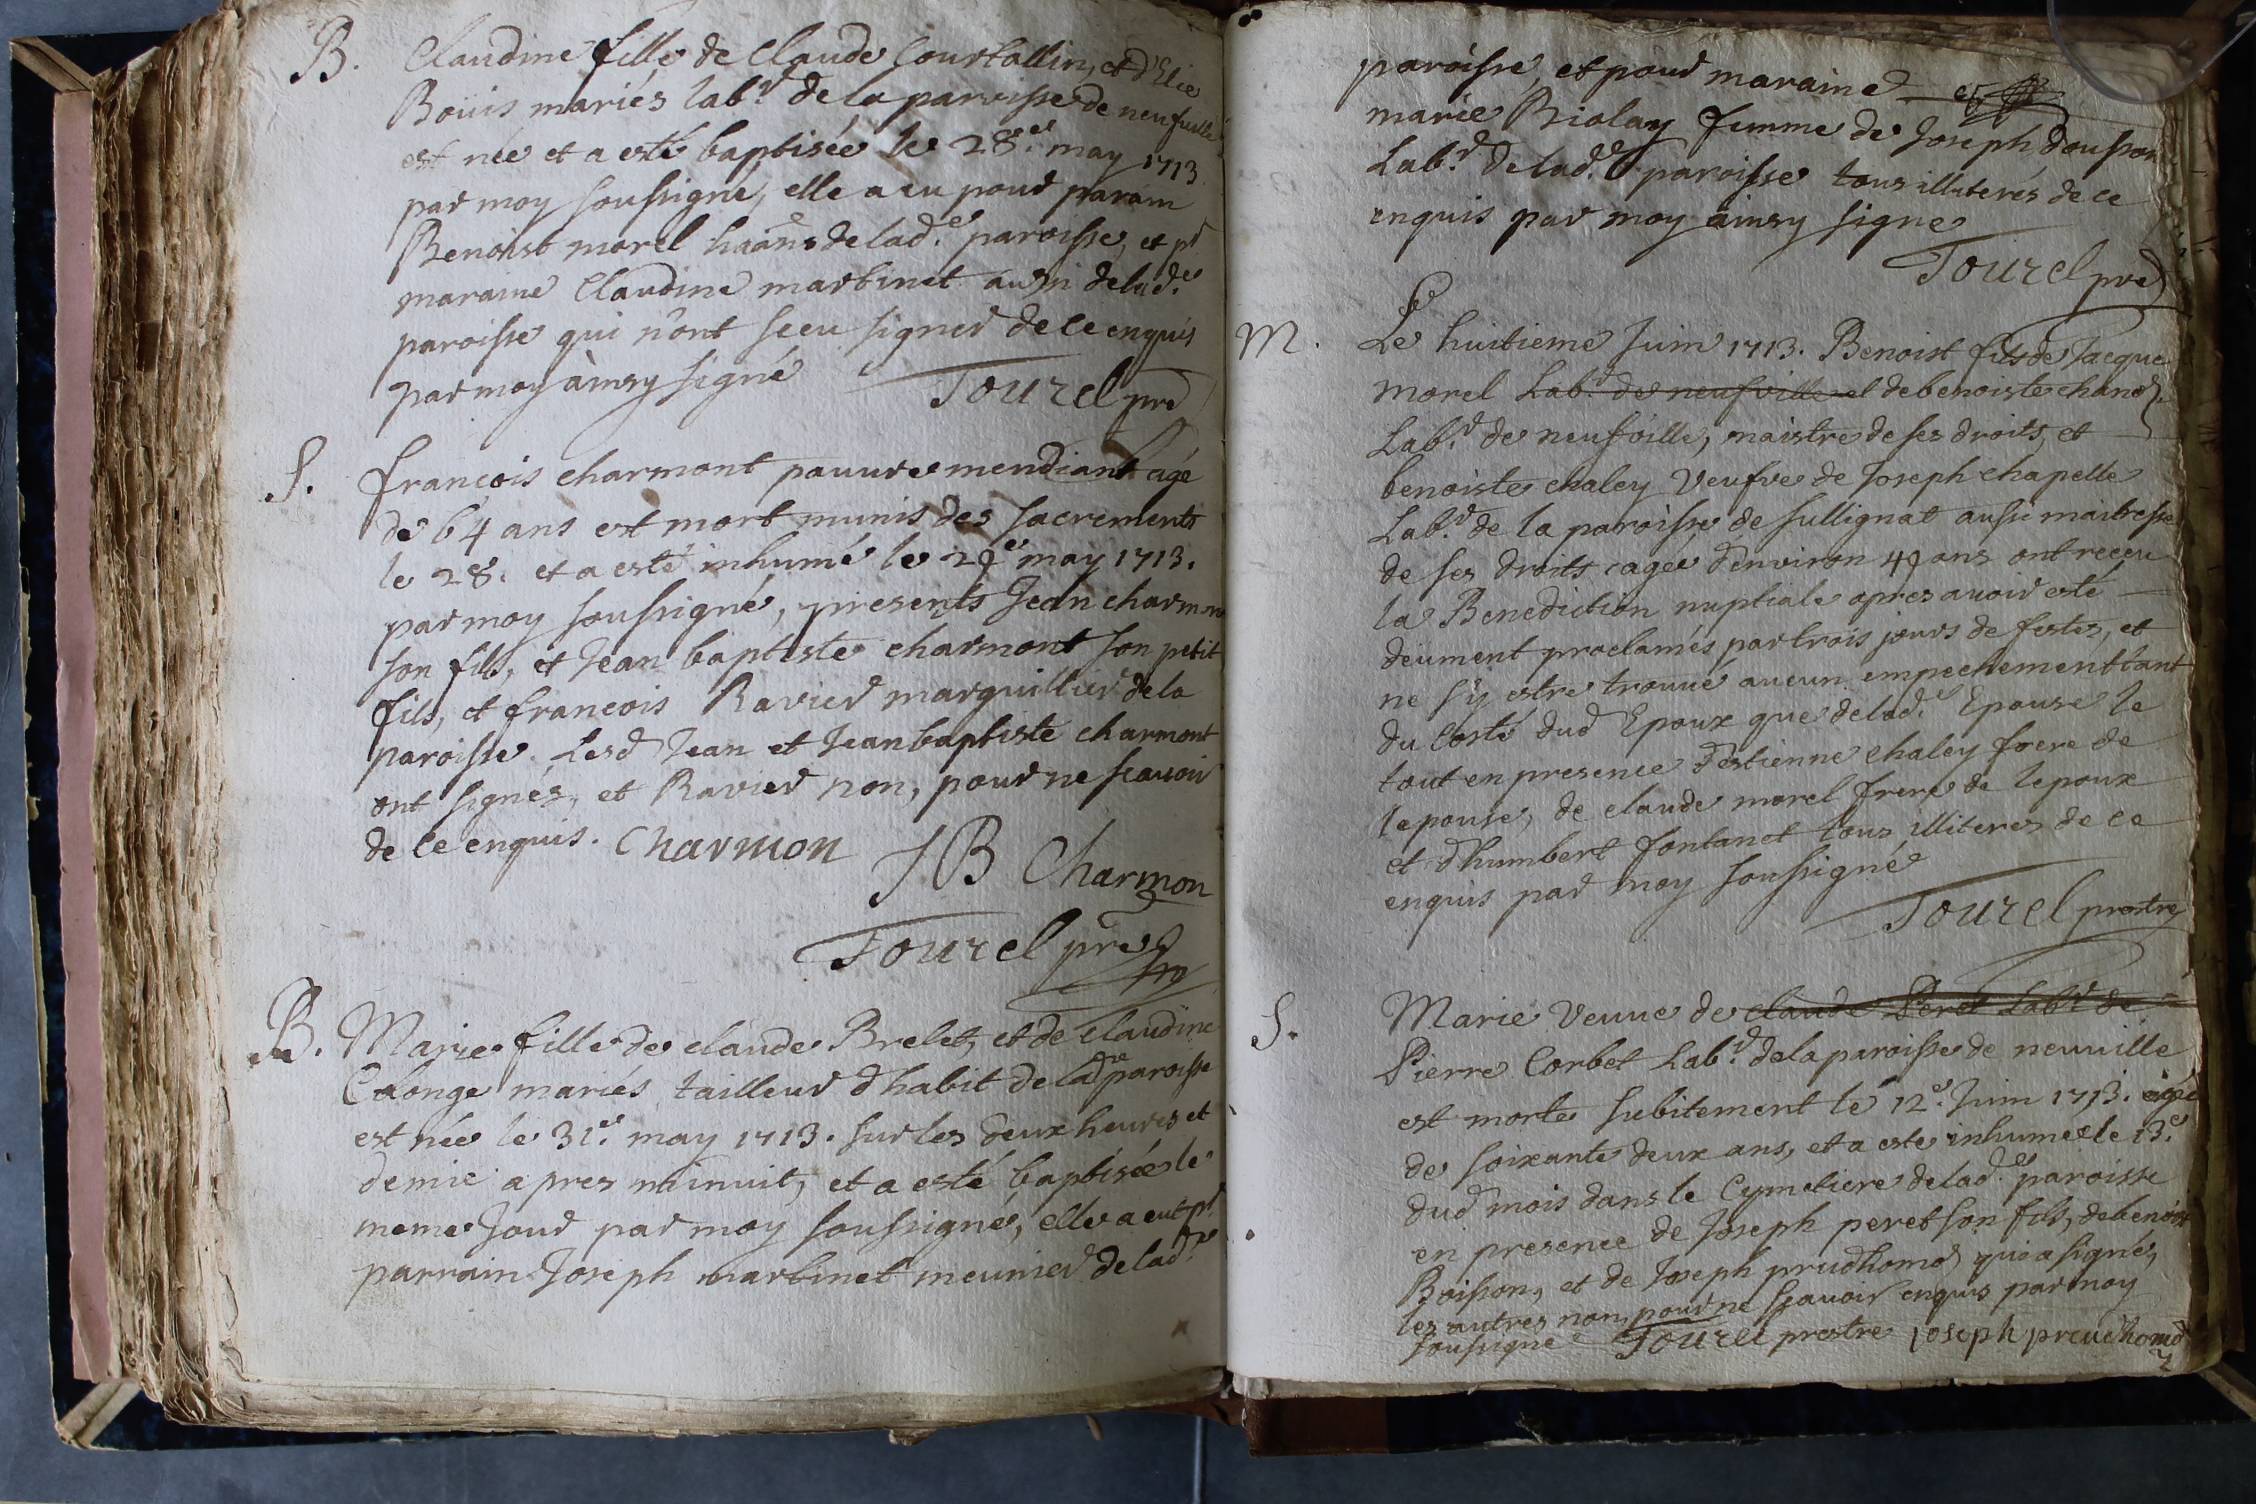 B. Claudine fille de Claude Courtallin, et d'Elie
Bouis mariés lab.r de la paroisse de neufville
est née et a esté baptisée le 28.e may 1713
par moy soussigné, elle a eu pour parain
Benoist morel de lad.e paroisse, et pr
maraine Claudine martinet aussi de lad.e
paroisse qui n'ont sceu signer de ce enquis
par moy àinsy signé Tourel pre
S. francois charmont pauure mendiant agé
de 64 ans est mort munis des sacrements
le 28. et a esté inhumé le 29e may 1713.
par moy soussigné, presents Jean charmont
son fils, et Jean baptiste charmont son petit
fils, et francois Ravier marguillier de la
paroisse. Lesd Jean et Jean baptiste charmont
ont signés, et Ravier non, pour ne scauoir
de ce enquis. Charmon
JB Charmon
Tourel pre
B. Marie fille de claude Brelet, et de Claudine
Calonge mariés tailleur d'habit de lad.e paroisse
est née le 31e. may 1713. sur les deux heures et
demie apres minuit, et a esté baptisée le
meme Jour par moy soussigné, elle a eut pr
parrain Joseph martinet meunier de lad.e
paroisse, et pour maraine
marie Riolay femme de Joseph Dousson
Lab.r de lad.e paroisse tous illiterés de ce
enquis par moy àinsy signe
Tourel pre
M. Le huitieme Juin 1713. Benoist fils de Jacque
morel Lab.r de neufville et de benoiste chanel
Lab.r de neufville, maistre de ses droits, et
benoiste chaley Veufve de Joseph chapelle
Lab.r de la paroisse de sullignat aussi maitresse
de ses droits agée d'environ 40 ans ont receu
la Benediction nuptiale apres auoir esté
deument proclamés par trois jours de festes, et
ne s'y estre trouué aucun empechement tant
du costé dud Epoux que de lad.e Epouse le
tout en presence d'estienne chaley frere de
lepouse, de claude morel frere de lepoux
et d'humbert fontanet tous illiteres de ce
enquis par moy soussigné
Tourel prestre
S. Marie veuue de claude Peret Lab.r de
Pierre Corbet Lab.r de la paroisse de neuuille
est morte subitement le 12.e Juin 1713. agée
de soixante deux ans, et a este inhumée le 13.e
dud mois dans le Cymetiere de lad.e paroisse
en presence de Joseph peret son fils, de benoist
Boisson, et de Joseph prudhome qui a signé,
les autres non pour ne scauoir enquis par moy
soussigne Tourel prestre Joseph preudhome